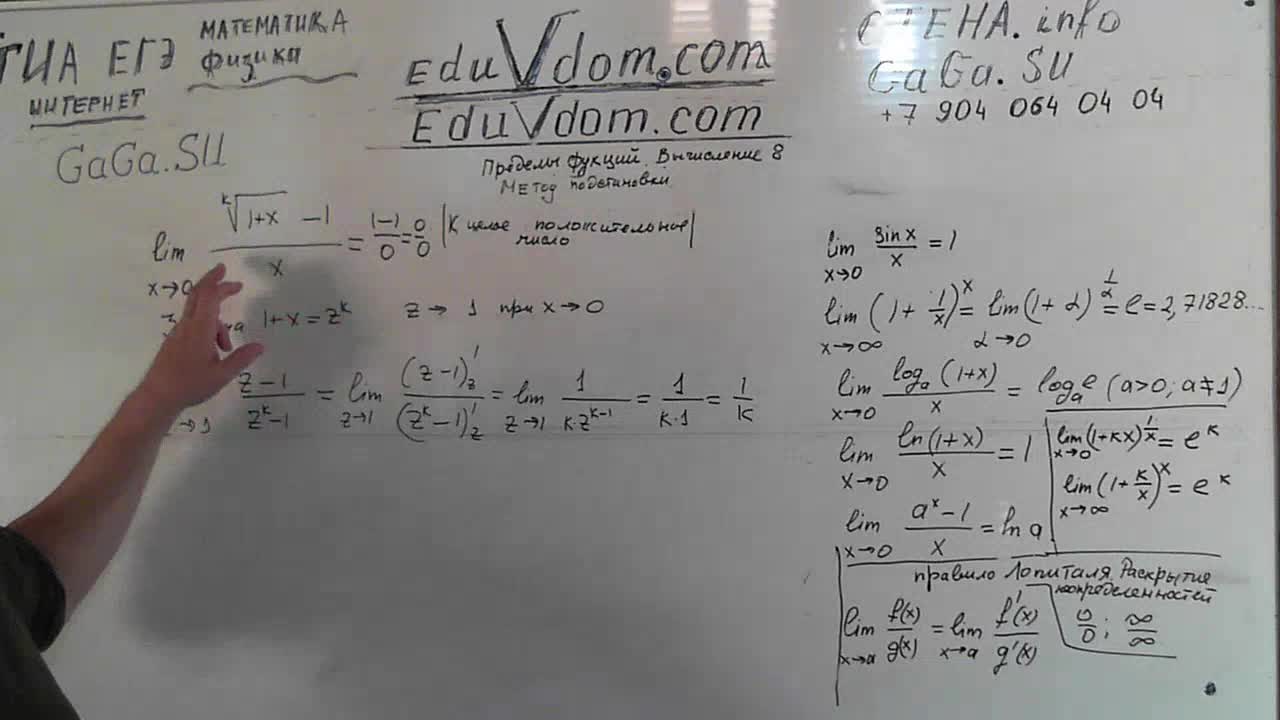 ГИА ЕГЭ МАТЕМАТИКА
физика
ИНТЕРНЕТ
GaGa.SU
EduVdom.com
EduVdom.com
Пределы фукций. Вычисление 8
Метод подстановки
СТЕНА.info
GaGa.SU
+7 904 064 04 04
lim x→0 (ᵏ√(1+x) −1)/x = (1−1)/0 = 0/0 |К целое положительное число|
1+x = zᵏ z → 1 при x→0
(z−1)/(zᵏ−1) = lim z→1 (z−1)'z/(zᵏ−1)'z = lim z→1 1/(k·zᵏ⁻¹) = 1/(k·1) = 1/k
lim x→0 sin x/x = 1
lim x→∞ (1+ 1/x)ˣ = lim α→0 (1+ α)^(1/α) = e = 2,71828...
lim x→0 logₐ(1+x)/x = logₐe (a>0; a≠1)
lim x→0 ln(1+x)/x = 1
lim x→0 (1+кx)^(1/x) = eᵏ
lim x→∞ (1+ к/x)ˣ = eᵏ
lim x→0 (aˣ−1)/x = ln a
правило Лопиталя. Раскрытие
неопределенностей
lim x→a f(x)/g(x) = lim x→a f'(x)/g'(x) 0/0; ∞/∞